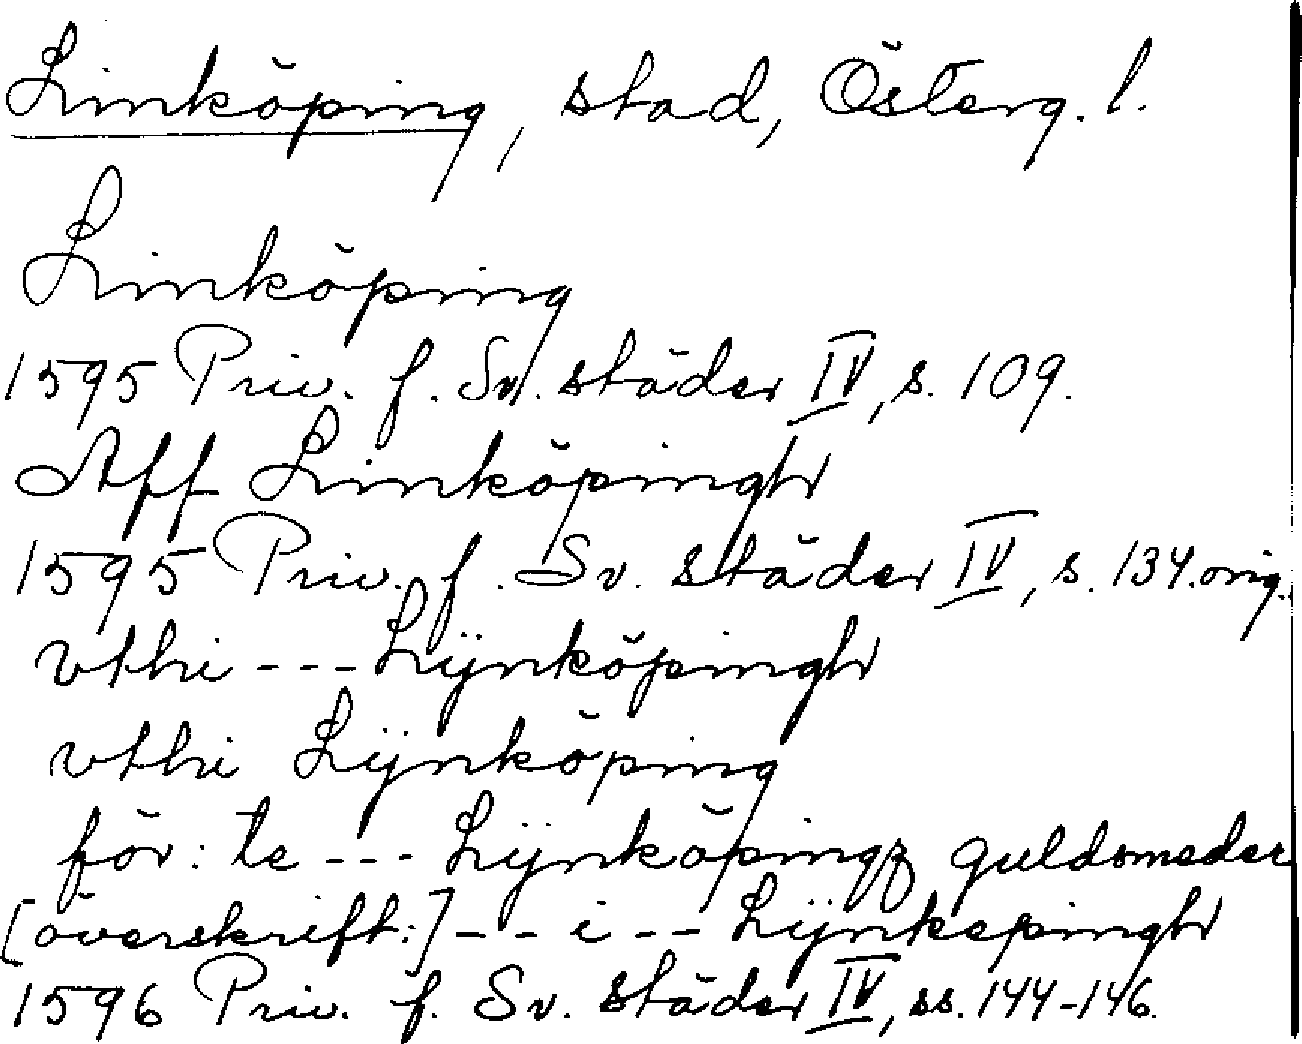 Linköping, stad, Österg. l.
Linköping
1595 Priv. f. Sv. städer IV, s. 109.
Aff Linköpingh
1595 Priv. f. Sv. städer IV, s. 134. orig.
vthi --- Lÿnköpingh
vthi Lÿnköping
för: te --- Lÿnköpingz guldsmeder
[överskrift:] -- i -- Lÿnkepingh
1596 Priv. f. Sv. städer IV, ss. 144-146.